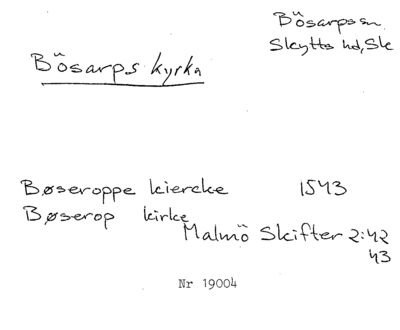 Bösarps sn
Skytts hd, Sk
Bösarps kyrka
Bøseroppe kiercke 1543
Bøserop kirke
Malmö Skifter 2:42
43
Nr 19004